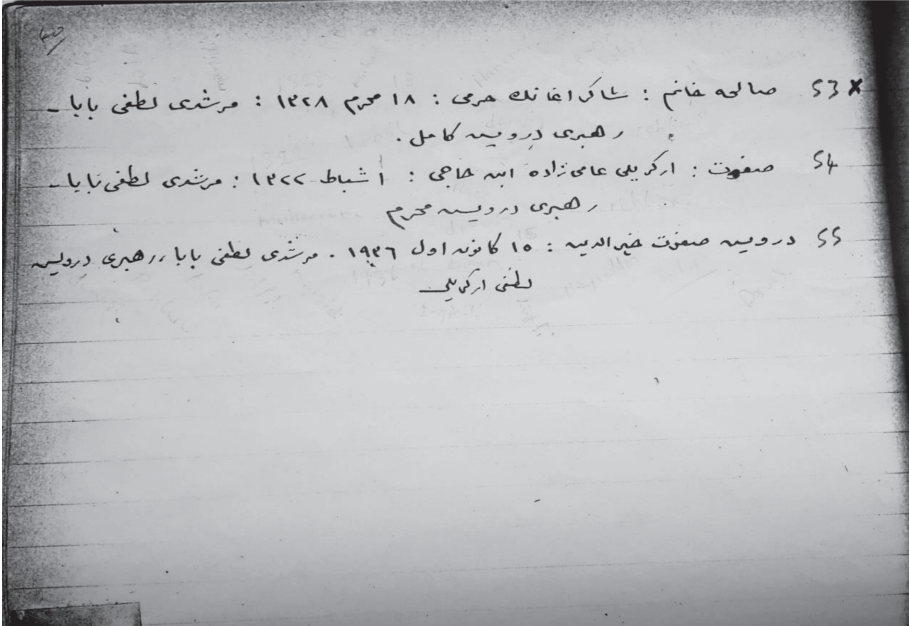 53 x صالحه خانم : شاكر اغانك حرمى : ١٨ محرم ١٣٢٨ : مرشدى لطفى بابا ـ
رهبرى درويش كامل .
54 صفوت : اركريلى عامى زاده ابن حاجى : ١ شباط ١٣٢٢ : مرشدى لطفى بابا ـ
رهبرى درويش محرم
55 درويش صفوت خيرالدين : ١٥ كانون اول ١٩٣٦ . مرشدى لطفى بابا، رهبرى درويش
لطفى اركريلى